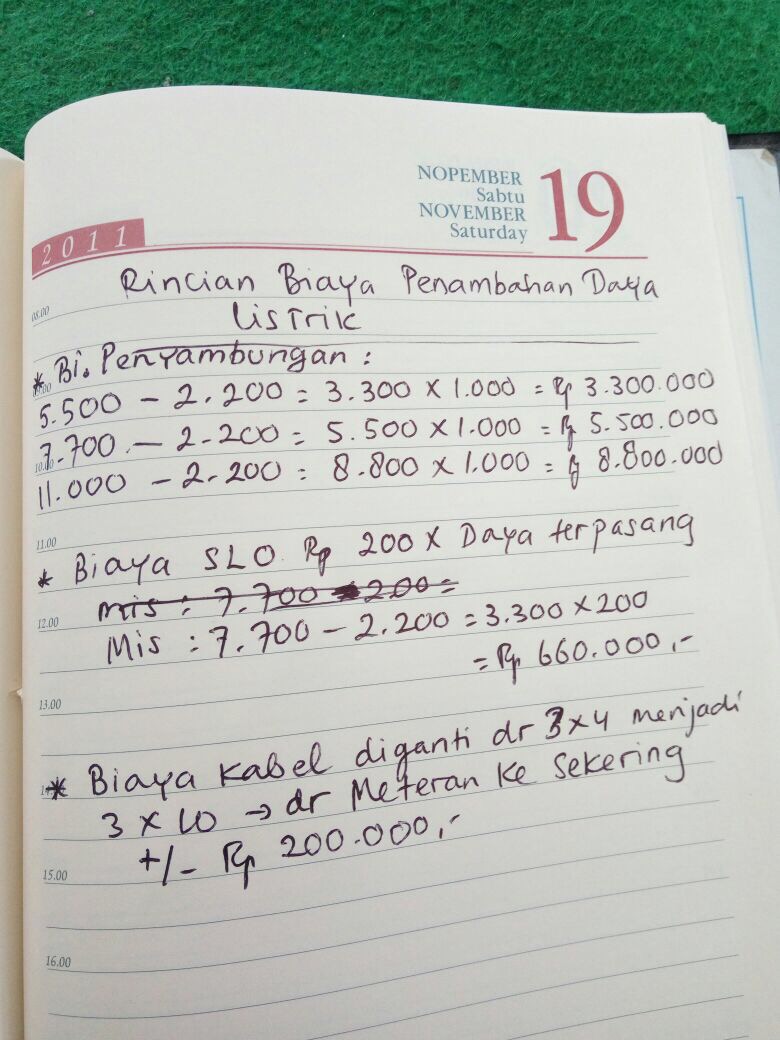 NOPEMBER
Sabtu
NOVEMBER
Saturday
19
2011
Rincian Biaya Penambahan Daya
Listrik
08.00
* Bi. Penyambungan :
09.00
5.500 - 2.200 = 3.300 x 1.000 = Rp 3.300.000
7.700 - 2.200 = 5.500 x 1.000 = Rp 5.500.000
10.00
11.000 - 2.200 = 8.800 x 1.000 = Rp 8.800.000
11.00
* Biaya SLO Rp 200 x Daya terpasang
mis : 7.700 x 200 =
12.00
Mis : 7.700 - 2.200 = 3.300 x 200
= Rp 660.000,-
13.00
* Biaya Kabel diganti dr 3x4 menjadi
3 x 10 → dr Meteran Ke Sekering
+/- Rp 200.000,-
15.00
16.00